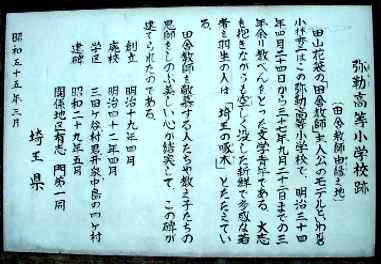 弥勒高等小学校跡
(田舎教師由縁之地)
田山花袋の「田舎教師」主人公のモデルといわれる
小林秀三はこの弥勒高等小学校で、明治三十四
年四月二十四日から三十七年九月二十二日までの三
年余り教べんをとった文学青年である。大志
を抱きながらも空しく没した新鮮で多感な若
者を羽生の人は「埼玉の啄木」とたたえてい
る。
田舎教師を敬慕する人たちや教え子たちの
恩師をしのぶ美しい心が結実して、この碑が
建てられたのである。
創立 明治十九年四月
廃校 明治四十二年四月
学区 三田ヶ谷村 村君 発戸 の四ヶ村
建碑 昭和二十九年五月
関係地区有志 門弟一同
昭和五十五年三月
埼玉県